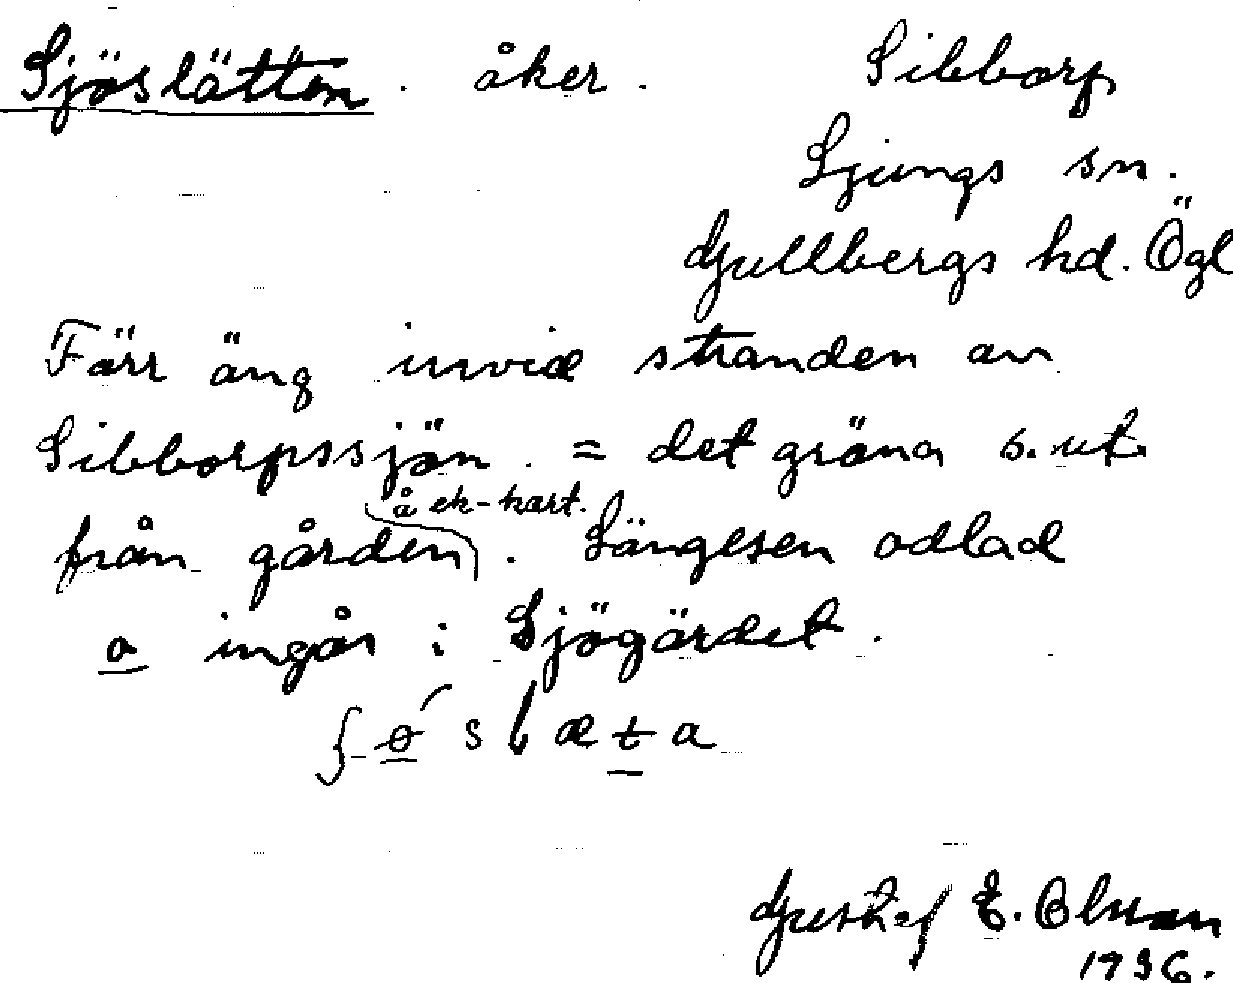 Sjöslätten. åker. Sibborp
Ljungs sn.
Gullbergs hd. Ögl
Förr äng invid stranden av
Sibborpssjön. = det gröna s. ut.
å ek-kart.
från gården. Längesen odlad
o ingår i Sjögärdet.
Gustaf E. Olman
1936.